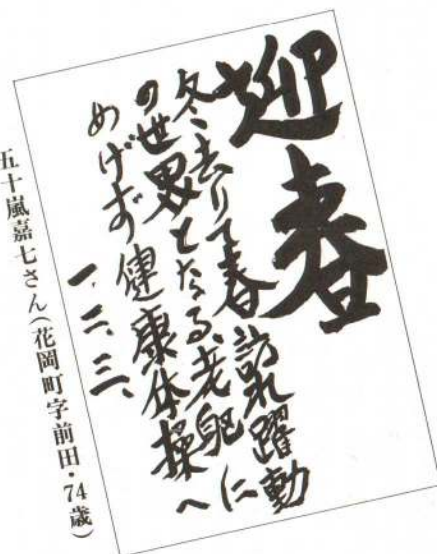 迎春
冬去りて春訪れ躍動
の世界となる、老躯に
めげず健康体操へ
一、二、三、
五十嵐嘉七さん(花岡町字前田・74歳)